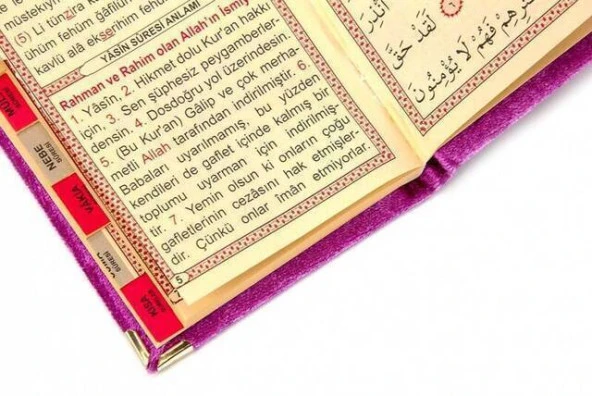 müstekıym
(5) Li tünzira
ühüm fehüm gafilûn
kavlü alâ ekserihim fehüm
YÂSİN SÛRESİ ANLAMI
Rahman ve Rahim olan Allah'ın ismiy
1. Yâsîn, 2. Hikmet dolu Kur'an hakkı
için, 3. Sen şüphesiz peygamberler-
densin. 4. Dosdoğru yol üzerindesin.
5. (Bu Kur'an) Gâlip ve çok merha-
metli Allah tarafından indirilmiştir. 6.
Babaları uyarılmamış, bu yüzden
kendileri de gaflet içinde kalmış bir
toplumu uyarman için indirilmiş-
tir. 7. Yemin olsun ki onların çoğu
gafletlerinin cezasını hak etmişler-
dir. Çünkü onlar îmân etmiyorlar.
5
لَقَدْ حَقَّ
فَهُمْ لَا يُؤْمِنُونَ
NEBE
SÛRESİ
VAKIA
SÛRESİ
KISA